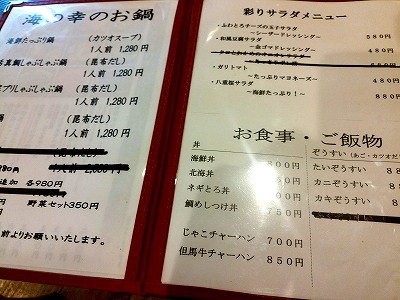 海の幸のお鍋
海鮮たっぷり鍋 (カツオスープ)
1人前 1,280円
真鯛しゃぶしゃぶ鍋 (昆布だし)
1人前 1,280円
ブリしゃぶしゃぶ鍋 (昆布だし)
1人前 1,280円
鍋 (昆布だし)
1人前 1,280円
追加 各980円
野菜セット350円
前よりお願いいたします。
彩りサラダメニュー
・ふわとろチーズの玉子サラダ
~シーザードレッシング~ 580円
・和風豆腐サラダ
~金ゴマドレッシング~ 480円
・ガリトマト 480円
~たっぷりマヨネーズ~
・八重桜サラダ 880円
~海鮮たっぷり!~
お食事・ご飯物
丼
海鮮丼 800円
北海丼
ネギとろ丼
鯛めしつけ丼 750円
じゃこチャーハン 700円
但馬牛チャーハン 850円
ぞうすい (あご・カツオだ
たいぞうすい
カニぞうすい
カキぞうすい